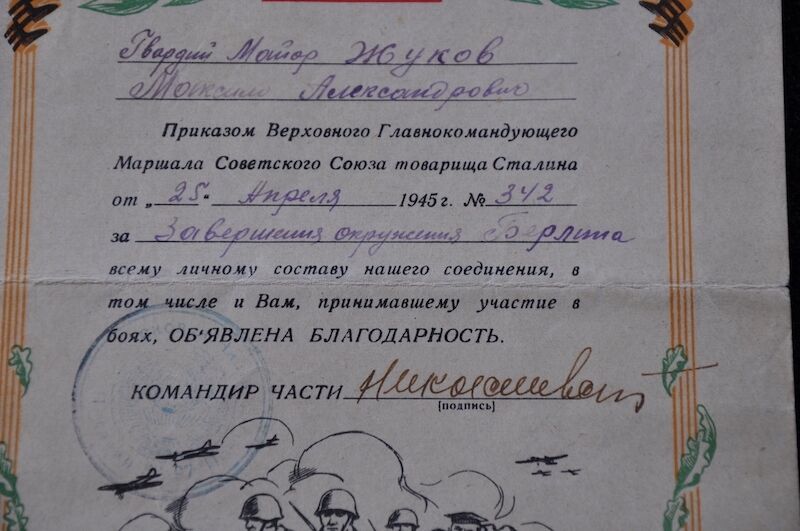 Гвардии Майор Жуков
Максим Александрович
Приказом Верховного Главнокомандующего
Маршала Советского Союза товарища Сталина
от „25“ Апреля 1945 г. № 342
за Завершения окружения Берлина
всему личному составу нашего соединения, в
том числе и Вам, принимавшему участие в
боях, ОБ'ЯВЛЕНА БЛАГОДАРНОСТЬ.
КОМАНДИР ЧАСТИ
[подпись]